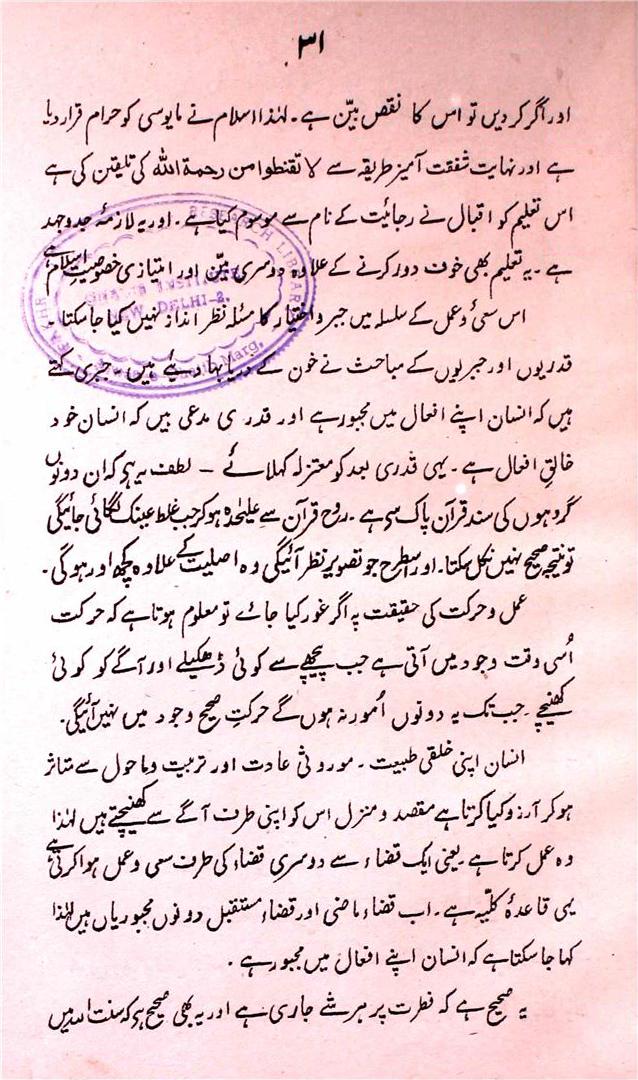 ۳۱
اور اگر کر دیں تو اس کا نقص بیّن ہے۔ لہٰذا اسلام نے مایوسی کو حرام قرار دیا
ہے اور نہایت شفقت آمیز طریقہ سے لا تقنطوا من رحمۃ اللہ کی تلیقن کی ہے
اس تعلیم کو اقبال نے رجائیت کے نام سے موسوم کیا ہے۔ اور یہ لازمۂ جدوجہد
ہے۔ یہ تعلیم بھی خوف دور کرنے کے علاوہ دوسری بیّن اور امتیازی خصوصیت اسلام ہے
اس سعی وعمل کے سلسلہ میں جبر واختیار کا مسئلہ نظر انداز نہیں کیا جا سکتا۔
قدریوں اور جبریوں کے مباحث نے خون کے دریا بہا دیئے ہیں۔ جبری کہتے
ہیں کہ انسان اپنے افعال میں مجبور ہے اور قدری مدعی ہیں کہ انسان خود
خالقِ افعال ہے۔ یہی قدری بعد کو معتزلہ کہلائے – لطف یہ ہی کہ ان دونوں
گروہوں کی سند قرآن پاک سی ہے۔ روح قرآن سے علیٰحدہ ہو کر جب غلط عینک لگائی جائیگی
تو نتیجہ صحیح نہیں نکل سکتا۔ اور اسطرح جو تصویر نظر آئیگی وہ اصلیت کے علاوہ کچھ اور ہو گی۔
عمل وحرکت کی حقیقت پہ اگر غور کیا جائے تو معلوم ہوتا ہے کہ حرکت
اُسی وقت وجود میں آتی ہے جب پیچھے سے کوئی ڈھکیلے اور آگے کو کوئی
کھنیچے۔ جب تک یہ دونوں اُمور نہ ہوں گے حرکتِ صحیح وجود میں نہیں آئیگی۔
انسان اپنی خلقی طبیعت۔ موروثی عادت اور تربیت وماحول سے متاثر
ہو کر آرزو کیا کرتا ہے مقصد ومنزل اس کو اپنی طرف آگے سے کھنیچتے ہیں لہٰذا
وہ عمل کرتا ہے۔ یعنی ایک قضاء سے دوسری قضاء کی طرف سعی وعمل ہوا کرتی ہے
یہی قاعدۂ کلیّہ ہے۔ اب قضاء ماضی اور قضاء مستقبل دونوں مجبوریاں ہیں لہٰذا
کہا جا سکتا ہے کہ انسان اپنے افعال میں مجبور ہے۔
یہ صحیح ہے کہ فطرت پر ہر شے جاری ہے اور یہ بھی صحیح ہی کہ سنت اللہ میں
LIBRARY
DELHI-2.
Marg,